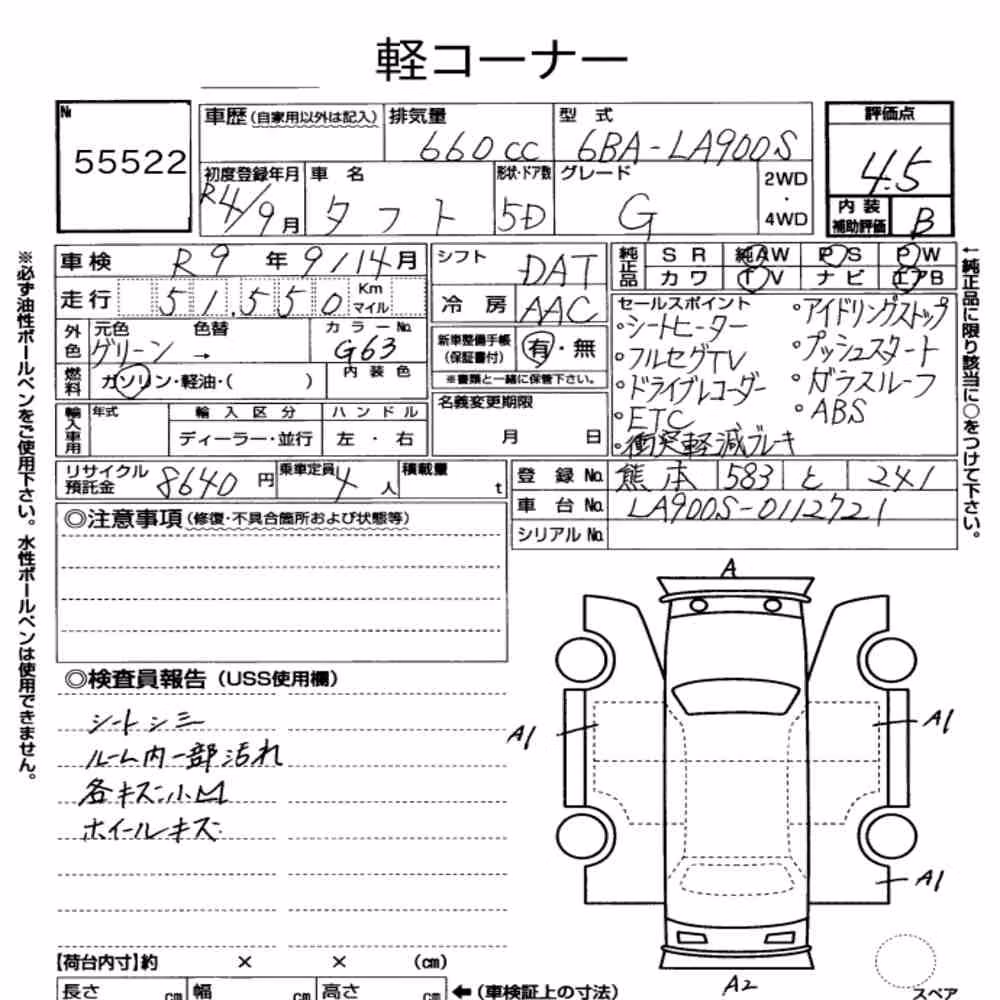 軽コーナー
№ 55522
車歴 (自家用以外は記入)
排気量 660cc
型式 6BA-LA900S
評価点 4.5
初度登録年月 R4/9月
車名 タフト
形状・ドア数 5D
グレード G
2WD・4WD
内装補助評価 B
車検 R9年9/14月
走行 51,550 Km マイル
シフト DAT
冷房 AAC
純正品 SR 純AW PS PW
カワ TV ナビ エアB
外色 元色 グリーン → 色替
カラーNo. G63
内装色
燃料 ガソリン・軽油・( )
新車整備手帳(保証書付) 有・無
※書類と一緒に保管下さい。
輸入車用 年式 輸入区分 ハンドル
ディーラー・並行 左・右
名義変更期限
月 日
セールスポイント
・シートヒーター
・フルセグTV
・ドライブレコーダー
・ETC
・衝突軽減ブレーキ
・アイドリングストップ
・プッシュスタート
・ガラスルーフ
・ABS
リサイクル預託金 8640円
乗車定員 4人
積載量 t
登録No. 熊本 583 と 241
車台No. LA900S-0112721
シリアルNo.
◎注意事項(修復・不具合箇所および状態等)
◎検査員報告(USS使用欄)
シートシミ
ルーム内一部汚れ
各キズ小凹
ホイールキズ
A
A1
A1
A1
A2
スペア
【荷台内寸】約 × × (cm)
長さ cm 幅 cm 高さ cm ←(車検証上の寸法)
※必ず油性ボールペンをご使用下さい。水性ボールペンは使用できません。
←純正品に限り該当に○をつけて下さい。